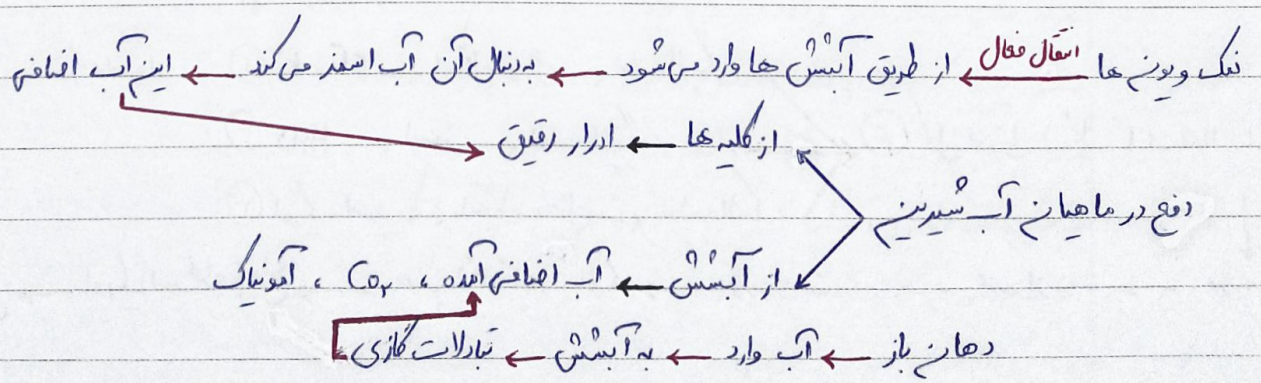 نمک و یون ها ← انتقال فعال از طریق آبشش ها وارد می شود ← به دنبال آن آب اسمز می کند ← این آب اضافی
از کلیه ها ← ادرار رقیق
دفع در ماهیان آب شیرین
از آبشش ← آب اضافی آمده ، CO₂ ، آمونیاک
دهان باز ← آب وارد ← به آبشش ← تبادلات گازی